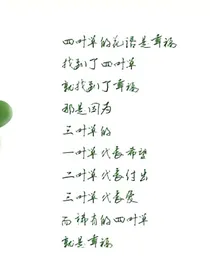 四叶草的花语是幸福
找到了四叶草
就找到了幸福
那是因为
三叶草的
一叶草代表希望
二叶草代表付出
三叶草代表爱
而稀有的四叶草
就是幸福